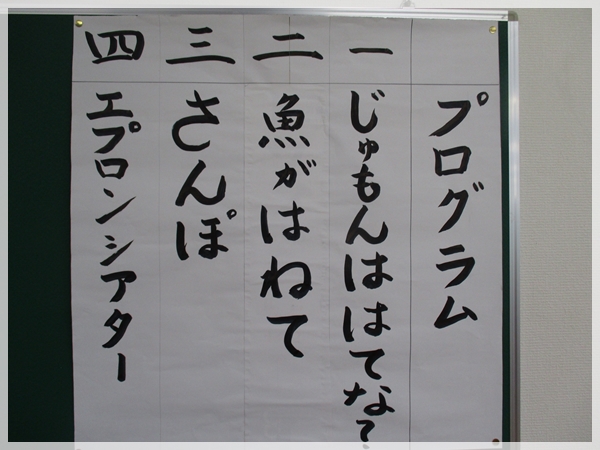 プログラム
一 じゅもんははてな
二 魚がはねて
三 さんぽ
四 エプロンシアター